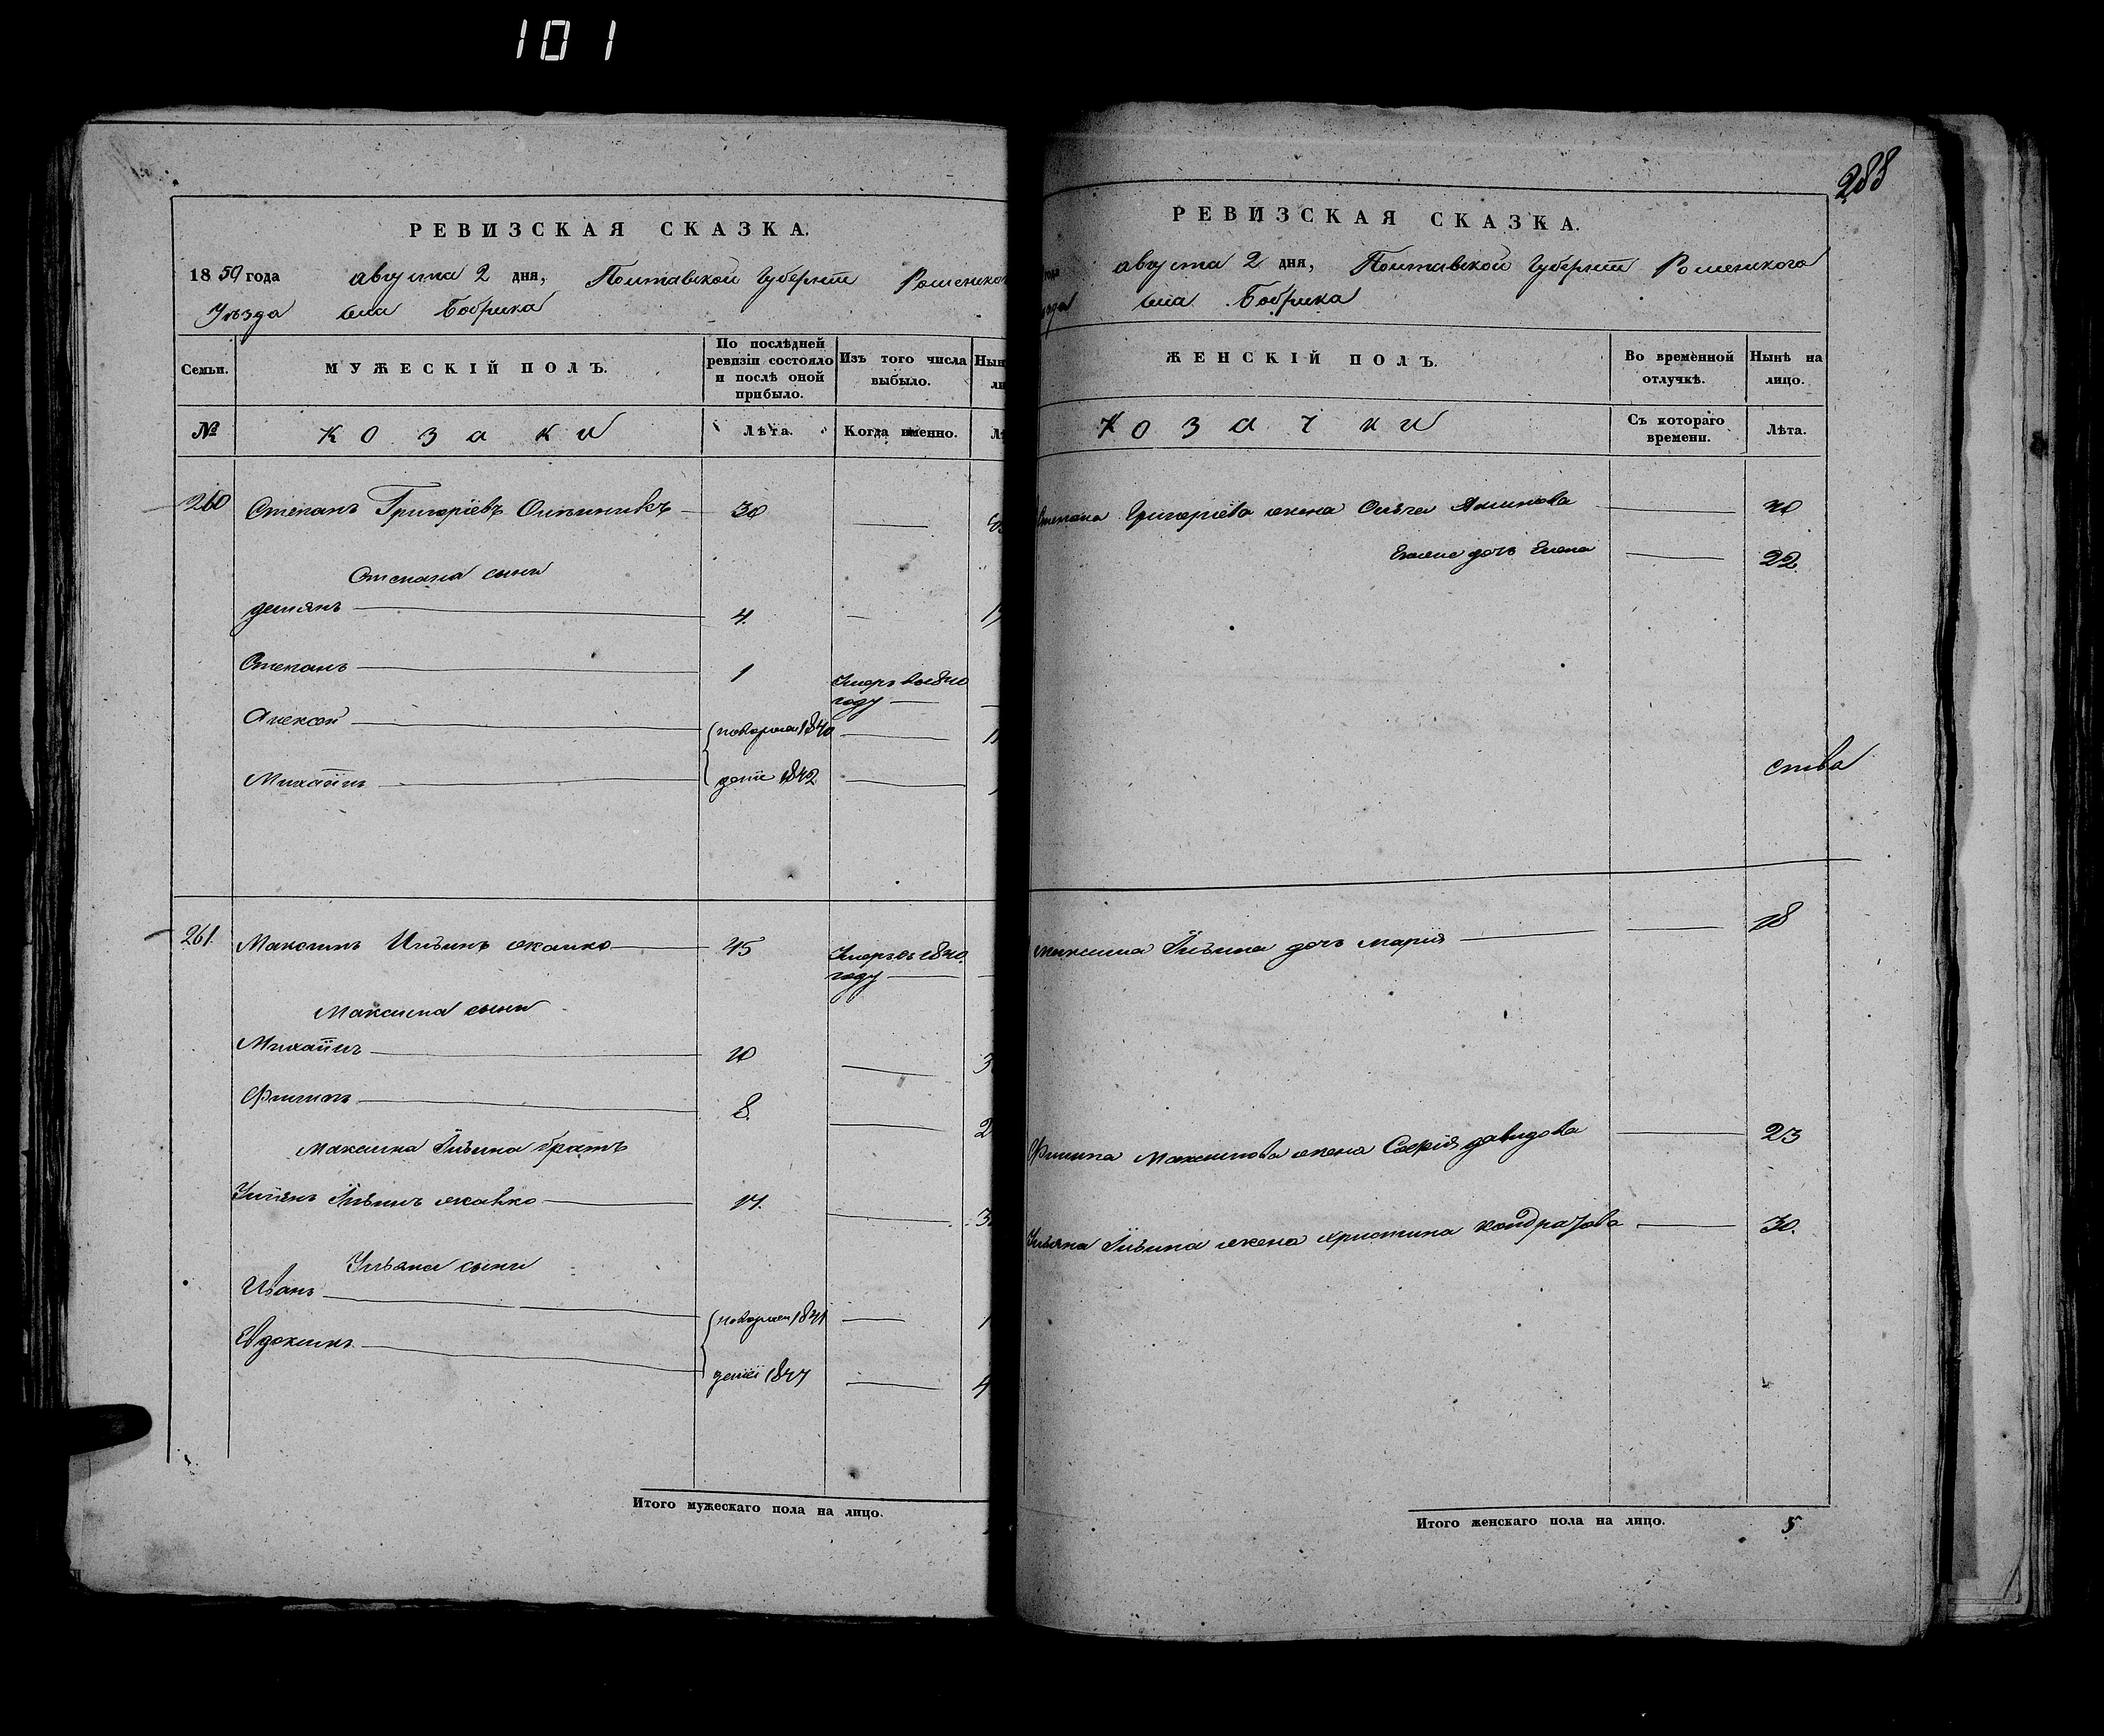 101
288
РЕВИЗСКАЯ СКАЗКА.
1850 года августа 2 дня, Полтавской Губерніи Роменског
Уѣзда села Бобрика
Семьи.
МУЖЕСКІЙ ПОЛЪ.
По послѣдней ревизіи состояло и послѣ оной прибыло.
Изъ того числа выбыло.
№
Козаки
Лѣта.
Когда именно.
260 Степанъ Григоріевъ 30
Степана сыны
Демянъ 4.
Степанъ 1 Умеръ въ 1840 году
Алексѣй 1840
Михаилъ 1842
261. Максимъ Ильинъ 45 Умеръ въ 1840. году
Максима сыны
Михаилъ
Филипъ 8.
Максима Ильина братъ
Ульянъ Ильинъ
Ульяна сыны
Иванъ 1841
Евдокимъ 1847
Итого мужескаго пола на лицо.
РЕВИЗСКАЯ СКАЗКА.
года августа 2 дня, Полтавской Губерніи Роменского
села Бобрика
ЖЕНСКІЙ ПОЛЪ.
Во временной отлучкѣ.
Нынѣ на лицо.
Козачки
Съ котораго времени.
Лѣта.
Степана Григоріева жена
дочь Елена 22.
ства
Максима Ильина дочь Марія 18
Филипа Максимова жена Софія Давидова 23
Ульяна Ильина жена Христина Кондратова 30.
Итого женскаго пола на лицо. 5